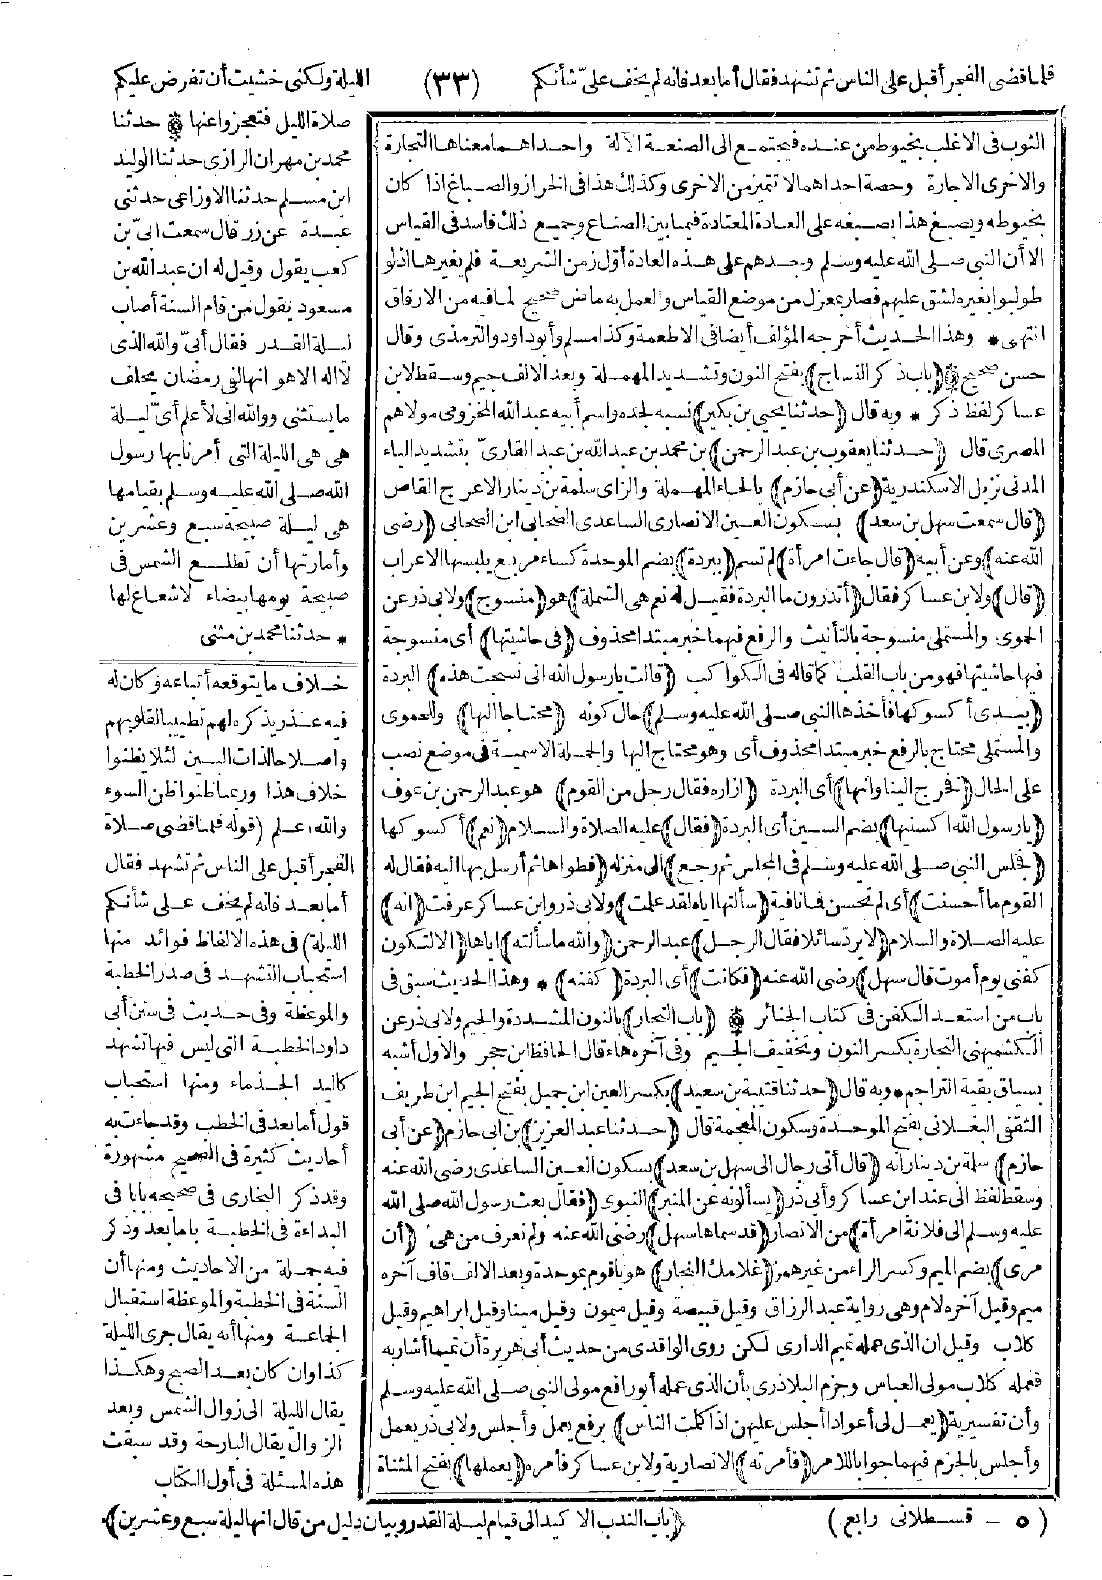 فلما قضى الفجر أقبل على الناس ثم تشهد فقال أما بعد فانه لم يخف علىّ شأنكم (٣٣) الليلة ولكنى خشيت أن تفرض عليكم
صلاة الليل فتعجزوا عنها * حدثنا
محمد بن مهران الرازى حدثنا الوليد
ابن مسلم حدثنا الاوزاعى حدثنى
عبدة عن زر قال سمعت ابىّ بن
كعب يقول وقيل له ان عبد الله بن
مسعود يقول من قام السنة أصاب
ليلة القدر فقال أبىّ والله الذى
لا اله الا هو انها لفى رمضان يحلف
ما يستثنى ووالله انى لأعلم أىّ ليلة
هى هى الليلة التى أمرنا بها رسول
الله صلى الله عليه وسلم بقيامها
هى ليلة صبيحة سبع وعشرين
وأمارتها أن تطلع الشمس فى
صبيحة يومها بيضاء لا شعاع لها
* حدثنا محمد بن مثنى
الثوب فى الاغلب بخيوط من عنده فيجتمع الى الصنعة الآلة واحداهما معناها التجارة
والاخرى الاجارة وحصة احداهما لا تتميز من الاخرى وكذلك هذا فى الخراز والصباغ اذا كان
بخيوطه ويصبغ هذا بصبغه على العادة المعتادة فيما بين الصناع وجميع ذلك فاسد فى القياس
الا أن النبى صلى الله عليه وسلم وجدهم على هذه العادة أول زمن الشريعة فلم يغيرها اذ لو
طولبوا بغيره لشق عليهم فصار بمعزل من موضع القياس والعمل به ماض صحيح لما فيه من الارفاق
انتهى * وهذا الحديث أخرجه المؤلف أيضا فى الاطعمة وكذا مسلم وأبو داود والترمذى وقال
حسن صحيح * (باب ذكر النساج) بفتح النون وتشديد المهملة وبعد الالف جيم وسقط لابن
عساكر لفظ ذكر * وبه قال (حدثنا يحيى بن بكير) نسبه لجده واسم أبيه عبد الله المخزومى مولاهم
المصرى قال (حدثنا يعقوب بن عبد الرحمن) بن محمد بن عبد الله بن عبد القارىّ بتشديد الياء
المدنى نزيل الاسكندرية (عن أبى حازم) بالحاء المهملة والزاى سلمة بن دينار الاعرج القاص
(قال سمعت سهل بن سعد) بسكون العين الانصارى الساعدى الصحابى ابن الصحابى (رضى
الله عنه) وعن أبيه (قال جاءت امرأة) لم تسم (ببردة) بضم الموحدة كساء مربع يلبسها الاعراب
(قال) ولابن عساكر فقال (أتدرون ما البردة فقيل له نعم هى الشملة) هو (منسوج) ولابى ذر عن
الحموى والمستملى منسوجة بالتأنيث والرفع فيهما خبر مبتدا محذوف (فى حاشيتها) أى منسوجة
فيها حاشيتها فهو من باب القلب كما قاله فى الكواكب (قالت يا رسول الله انى نسجت هذه) البردة
(بيدى أكسوكها فأخذها النبى صلى الله عليه وسلم) حال كونه (محتاجا اليها) وللحموى
والمستملى محتاج بالرفع خبر مبتدا محذوف أى وهو محتاج اليها والجملة الاسمية فى موضع نصب
على الحال (فخرج الينا وانها) أى البردة (ازاره فقال رجل من القوم) هو عبد الرحمن بن عوف
(يا رسول الله اكسنيها) بضم السين أى البردة (فقال) عليه الصلاة والسلام (نعم) أكسوكها
(فجلس النبى صلى الله عليه وسلم فى المجلس ثم رجع) الى منزله (فطواها ثم أرسل بها اليه فقال له
القوم ما أحسنت) أى لم تحسن فما نافية (سألتها اياه لقد علمت) ولابى ذر وابن عساكر عرفت (انه)
عليه الصلاة والسلام (لا يرد سائلا فقال الرجل) عبد الرحمن (والله ما سألته) اياها (الا لتكون
كفنى يوم أموت قال سهل) رضى الله عنه (فكانت) أى البردة (كفنه) * وهذا الحديث سبق فى
باب من استعد الكفن فى كتاب الجنائز * (باب النجار) بالنون المشددة والجيم ولابى ذر عن
الكشميهنى النجارة بكسر النون وتخفيف الجيم وفى آخره هاء قال الحافظ ابن حجر والاول أشبه
بسياق بقية التراجم * وبه قال (حدثنا قتيبة بن سعيد) بكسر العين ابن جميل بفتح الجيم ابن طريف
الثقفى البغلانى بفتح الموحدة وسكون المعجمة قال (حدثنا عبد العزيز) بن ابى حازم (عن أبى
حازم) سلمة بن دينار انه (قال أتى رجال الى سهل بن سعد) بسكون العين الساعدى رضى الله عنه
وسقط لفظ الى عند ابن عساكر وأبى ذر (يسألونه عن المنبر) النبوى (فقال بعث رسول الله صلى الله
عليه وسلم الى فلانة امرأة) من الانصار (قد سماها سهل) رضى الله عنه ولم نعرف من هى (أن
مرى) بضم الميم وكسر الراء من غير همز (غلامك النجار) هو باقوم بموحدة وبعد الالف قاف آخره
ميم وقيل آخره لام وهى رواية عبد الرزاق وقيل قبيصة وقيل ميمون وقيل مينا وقيل ابراهيم وقيل
كلاب وقيل ان الذى عمله تميم الدارى لكن روى الواقدى من حديث أبى هريرة أن تميما أشار به
فعمله كلاب مولى العباس وجزم البلاذرى بأن الذى عمله أبو رافع مولى النبى صلى الله عليه وسلم
وأن تفسيرية (يعمل لى أعوادا أجلس عليهن اذا كلمت الناس) برفع يعمل وأجلس ولابى ذر يعمل
وأجلس بالجزم فيهما جوابا للامر (فأمرته) الانصارية ولابن عساكر فأمره (يعملها) بفتح المثناة
خلاف ما يتوقعه أتباعه وكان له
فيه عذر يذكره لهم تطييبا لقلوبهم
واصلاحا لذات البين لئلا يظنوا
خلاف هذا وربما ظنوا ظن السوء
والله أعلم (قوله فلما قضى صلاة
الفجر أقبل على الناس ثم تشهد فقال
أما بعد فانه لم يخف على شأنكم
الليلة) فى هذه الالفاظ فوائد منها
استحباب التشهد فى صدر الخطبة
والموعظة وفى حديث فى سنن أبى
داود الخطبة التى ليس فيها تشهد
كاليد الجذماء ومنها استحباب
قول أما بعد فى الخطب وقد جاءت به
أحاديث كثيرة فى الصحيح مشهورة
وقد ذكر البخارى فى صحيحه بابا فى
البداءة فى الخطبة باما بعد وذكر
فيه جملة من الاحاديث ومنها أن
السنة فى الخطبة والموعظة استقبال
الجماعة ومنها أنه يقال جرى الليلة
كذا وان كان بعد الصبح وهكذا
يقال الليلة الى زوال الشمس وبعد
الزوال يقال البارحة وقد سبقت
هذه المسئلة فى أول الكتاب
(باب الندب الاكيد الى قيام ليلة القدر وبيان دليل من قال انها ليلة سبع وعشرين)
(٥ - قسطلانى رابع)